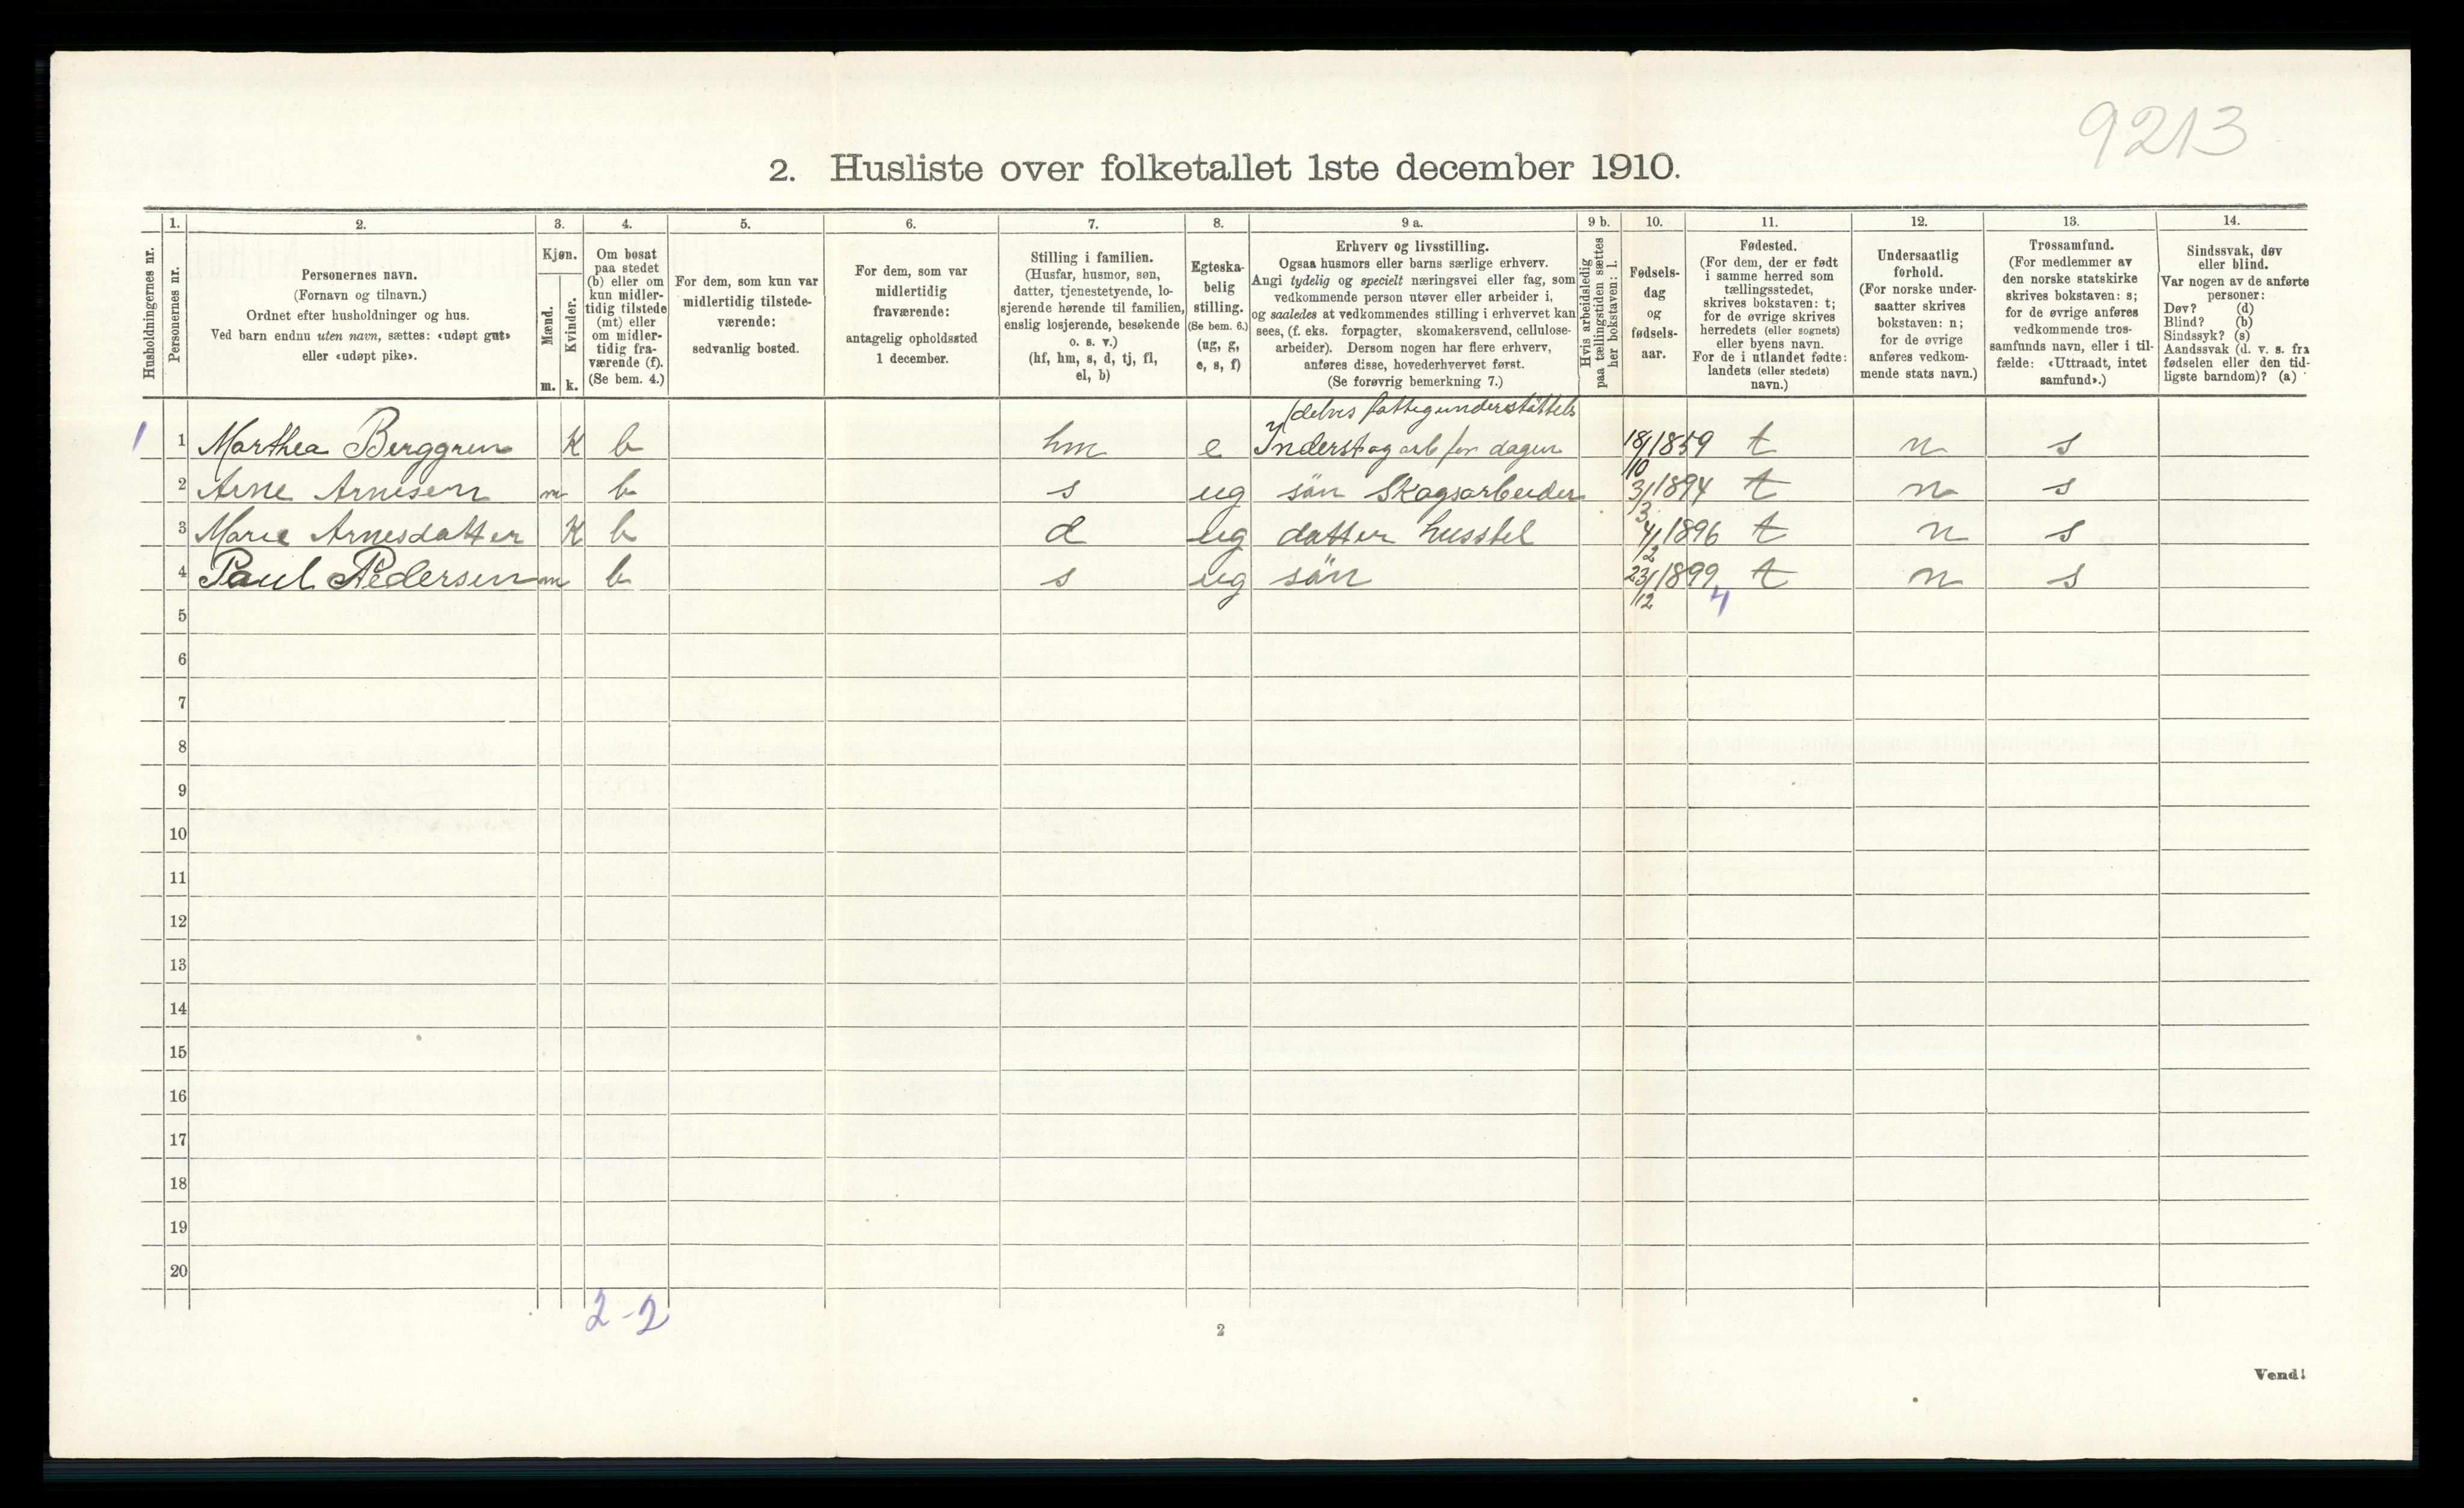 9213
2. Husliste over folketallet 1ste december 1910.
Husholdningernes nr.
1.
Personernes nr.
2.
Personernes navn.
(Fornavn og tilnavn.)
Ordnet efter husholdninger og hus.
Ved barn endnu uten navn, sættes: «udøpt gut»
eller «udøpt pike».
3.
Kjøn.
Mænd.
Kvinder.
m. k.
4.
Om bosat
paa stedet
(b) eller om
kun midler-
tidig tilstede
(mt) eller
om midler-
tidig fra-
værende (f).
(Se bem. 4.)
5.
For dem, som kun var
midlertidig tilstede-
værende:
sedvanlig bosted.
6.
For dem, som var
midlertidig
fraværende:
antagelig opholdssted
1 december.
7.
Stilling i familien.
(Husfar, husmor, søn,
datter, tjenestetyende, lo-
sjerende hørende til familien,
enslig losjerende, besøkende
o. s. v.)
(hf, hm, s, d, tj, fl,
el, b)
8.
Egteska-
belig
stilling.
(Se bem. 6.)
(ug, g,
e, s, f)
9 a.
Erhverv og livsstilling.
Ogsaa husmors eller barns særlige erhverv.
Angi tydelig og specielt næringsvei eller fag, som
vedkommende person utøver eller arbeider i,
og saaledes at vedkommendes stilling i erhvervet kan
sees, (f. eks. forpagter, skomakersvend, cellulose-
arbeider). Dersom nogen har flere erhverv,
anføres disse, hovederhvervet først.
(Se forøvrig bemerkning 7.)
9 b.
Hvis arbeidsledig
paa tællingstiden sættes
her bokstaven: l.
10.
Fødsels-
dag
og
fødsels-
aar.
11.
Fødested.
(For dem, der er født
i samme herred som
tællingsstedet,
skrives bokstaven: t;
for de øvrige skrives
herredets (eller sognets)
eller byens navn.
For de i utlandet fødte:
landets (eller stedets)
navn.)
12.
Undersaatlig
forhold.
(For norske under-
saatter skrives
bokstaven: n;
for de øvrige
anføres vedkom-
mende stats navn.)
13.
Trossamfund.
(For medlemmer av
den norske statskirke
skrives bokstaven: s;
for de øvrige anføres
vedkommende tros-
samfunds navn, eller i til-
fælde: «Uttraadt, intet
samfund».)
14.
Sindssvak, døv
eller blind.
Var nogen av de anførte
personer:
Døv? (d)
Blind? (b)
Sindssyk? (s)
Aandssvak (d. v. s. fra
fødselen eller den tid-
ligste barndom)? (a)
delvis fattigunderstöttels
1 1 Marthea Berggren K b hm e Inderst og arb for dagen 18/10 1859 t n s
2 Arne Arnesen m b s ug sön Skogsarbeider 3/3 1894 t n s
3 Marie Arnesdatter K b d ug datter husstel 4/2 1896 t n s
4 Paul Pedersen m b s ug sön 23/12 1899 t n s
4
5
6
7
8
9
10
11
12
13
14
15
16
17
18
19
20
2-2
2
Vend!